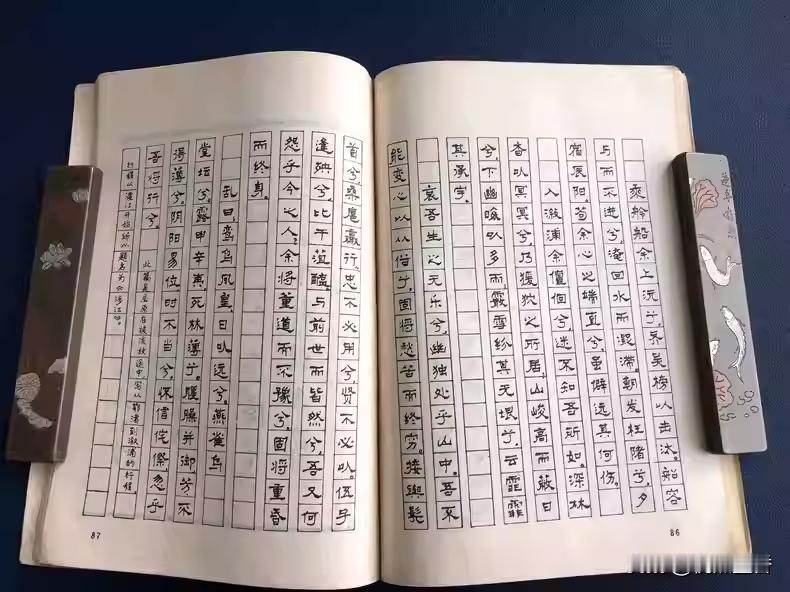 乘舲船余上沅兮，齐吴榜以击汰。船容
与而不进兮，淹回水而凝滞。朝发枉陼兮，夕
宿辰阳。苟余心之端直兮，虽僻远其何伤。
入溆浦余儃佪兮，迷不知吾所如。深林
杳以冥冥兮，乃猨狖之所居。山峻高而蔽日
兮，下幽晦以多雨。霰雪纷其无垠兮，云霏霏
其承宇。
哀吾生之无乐兮，幽独处乎山中。吾不
能变心以从俗兮，固将愁苦而终穷。接舆髡
86
首兮，桑扈臝行。忠不必用兮，贤不必以。伍子
逢殃兮，比干菹醢。与前世而皆然兮，吾又何
怨乎今之人。余将董道而不豫兮，固将重昏
而终身。
乱曰，鸾鸟凤皇，日以远兮。燕雀乌
堂坛兮。露申辛夷，死林薄兮。腥臊并御，芳不
得薄兮。阴阳易位，时不当兮。怀信侘傺，忽乎
吾将行兮。 此篇是屈原在被流放途中写从鄂渚到溆浦的行程，
行程从渡江开始所以题名为《涉江》。
87